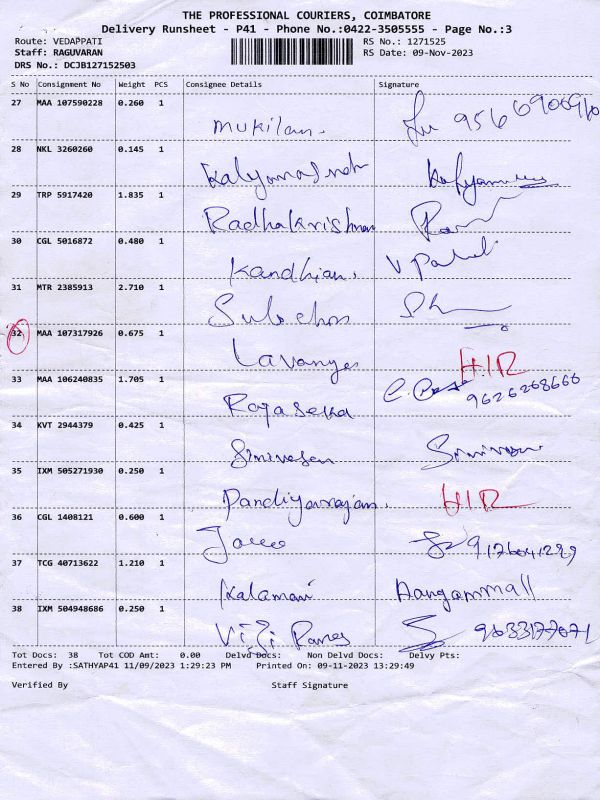 THE PROFESSIONAL COURIERS, COIMBATORE
Delivery Runsheet - P41 - Phone No.:0422-3505555 - Page No.:3
Route: VEDAPPATI RS No.: 1271525
Staff: RAGUVARAN RS Date: 09-Nov-2023
DRS No.: DCJB127152503
S No Consignment No Weight PCS Consignee Details Signature
27 MAA 107590228 0.260 1
Mukilan.
28 NKL 3260260 0.145 1
29 TRP 5917420 1.835 1
Radhakrishnan
30 CGL 5016872 0.480 1
Kandhian.
31 MTR 2385913 2.710 1
32 MAA 107317926 0.675 1
Lavanya H.I.R
33 MAA 106240835 1.705 1
Rajasekar 9626268666
34 KVT 2944379 0.425 1
Srinivasan
35 IXM 505271930 0.250 1
Pandiyarajan. H.I.R
36 CGL 1408121 0.600 1
37 TCG 40713622 1.210 1
Kalamani Aangammall
38 IXM 504948686 0.250 1
Tot Docs: 38 Tot COD Amt: 0.00 Delvd Docs: Non Delvd Docs: Delvy Pts:
Entered By :SATHYAP41 11/09/2023 1:29:23 PM Printed On: 09-11-2023 13:29:49
Verified By Staff Signature